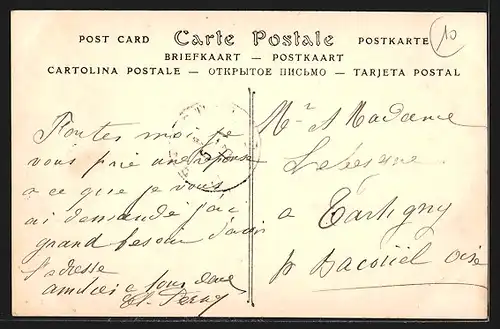 POST CARD Carte Postale POSTKARTE
BRIEFKAART — POSTKAART
CARTOLINA POSTALE — ОТКРЫТОЕ ПИСЬМО — TARJETA POSTAL
10
moi je
vous prie une réponse
a ce que je vous
ai demandé j'ai
grand besoin d'avoir
l'adresse
amitiés a tous deux
Mr et Madame
a Tartigny
pr Bacouël Oise